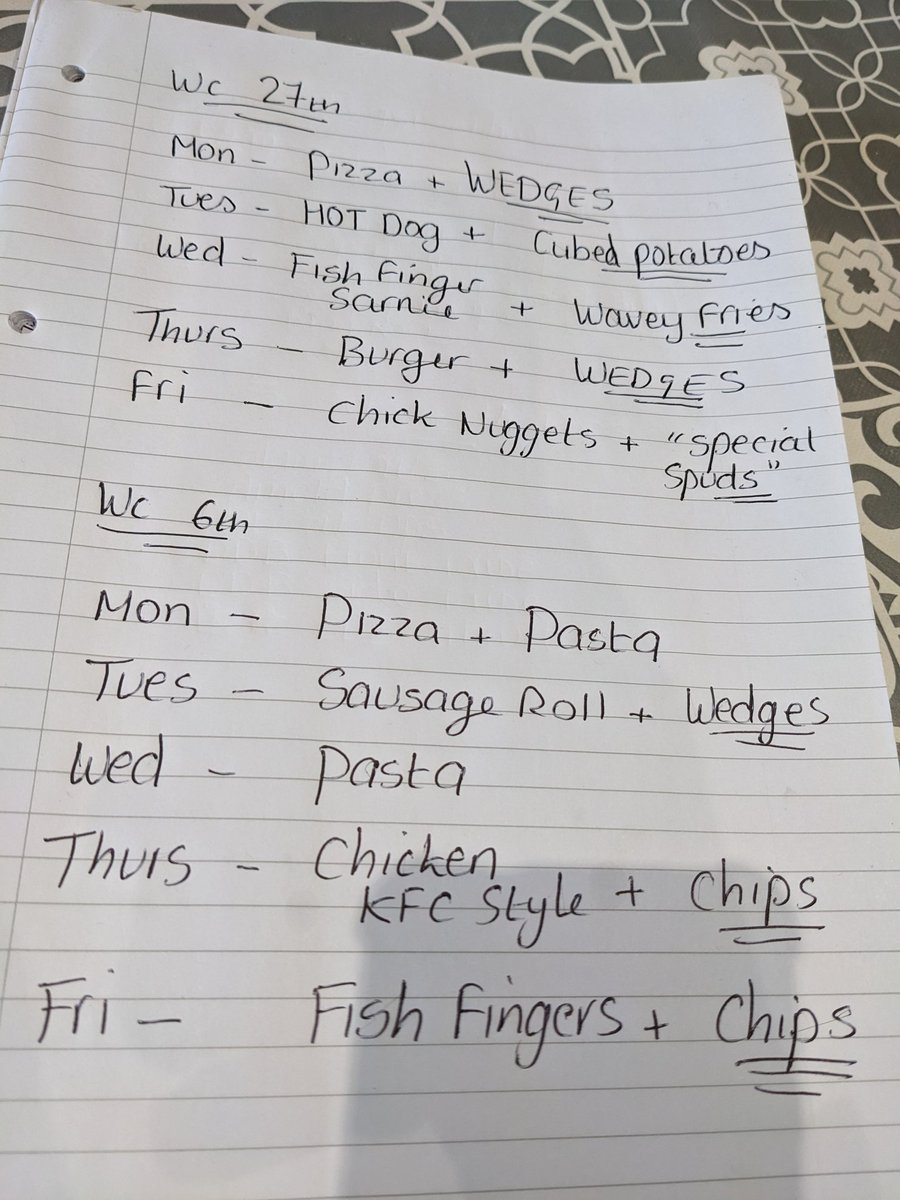 Wc 27th
Mon - Pizza + WEDGES
Tues - HOT Dog + Cubed potatoes
Wed - Fish Finger
Sarnie + Wavey Fries
Thurs - Burger + WEDGES
Fri - Chick Nuggets + "Special
Spuds"
Wc 6th
Mon - Pizza + Pasta
Tues - Sausage Roll + Wedges
Wed - Pasta
Thurs - Chicken
KFC Style + Chips
Fri - Fish Fingers + Chips